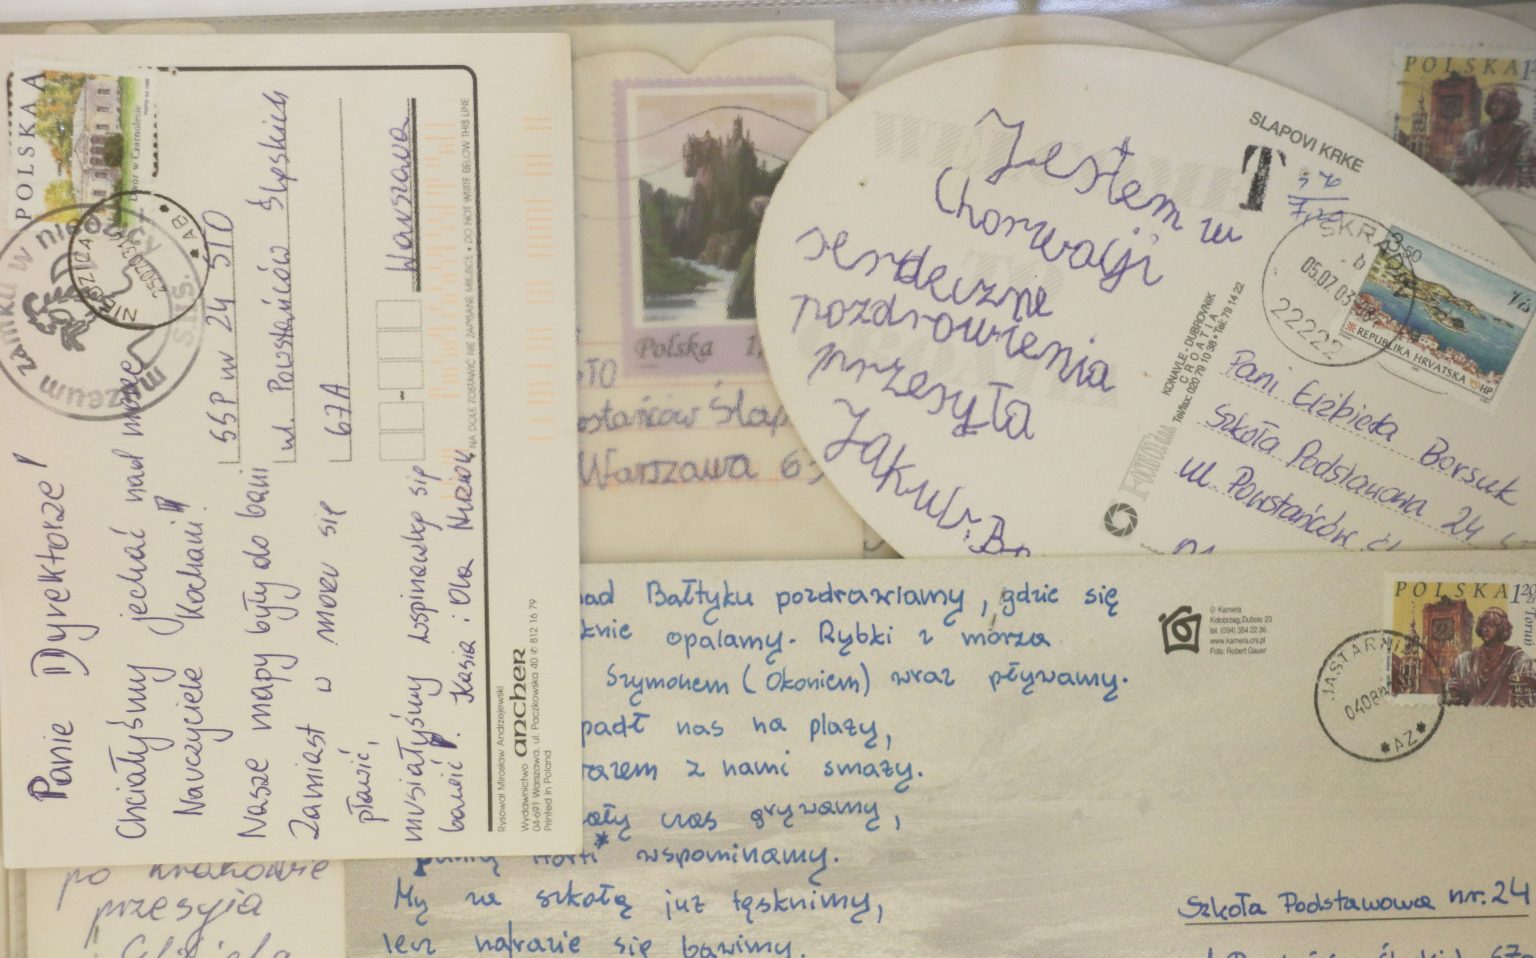 Panie Dyrektorze!
Chciałyśmy jechać nad morze
Nauczyciele Kochani!
Nasze mapy były do bani
Zamiast w morzu się
pławić,
musiałyśmy wspinaczką się
bawić. Kasia i Ola
SSP nr 24 STO
ul. Powstańców Śląskich
67A
Warszawa
POLSKA A
Dwór w Czarnolesie
muzeum zamku w nieborzy
NA DOLE ZOSTAWIĆ NIE ZAPISANE MIEJSCE • DO NOT WRITE BELOW THIS LINE
Rysował Mirosław Andrzejewski
Wydawnictwo ancher
04-691 Warszawa, ul. Paczkowska 40 ✆ 812 16 79
Printed in Poland
Polska 1,
STO
Powstańców Śląs
Warszawa 6
Jestem w
Chorwacji
serdeczne
pozdrowienia
przesyła
Jakub
SLAPOVI KRKE
T
SKRADIN
05.07.03
22222
3,50
REPUBLIKA HRVATSKA
HP
KONAVLE - DUBROVNIK
CROATIA
Tel/fax: 020 79 10 38 • Tel: 79 14 22
Pani Elżbieta Borsuk
Szkoła Podstawowa 24
ul Powstańców Śl
POLSKA 1
nad Bałtyku pozdrawiamy, gdzie się
knie opalamy. Rybki z morza
Szymonem (Okoniem) wraz pływamy.
padł nas na plaży,
razem z nami smaży.
ały czas grywamy,
wspominamy.
My za szkołą już tęsknimy,
lecz narazie się bawimy.
© Kamera
Kołobrzeg, Dubois 23
tel. (094) 354 22 36
www.kamera.crs.pl
Foto: Robert Gauer
POLSKA 1,20
Toruń
JASTARNIA
0408
*AZ*
Szkoła Podstawowa nr. 24
po Krakowie
przesyła